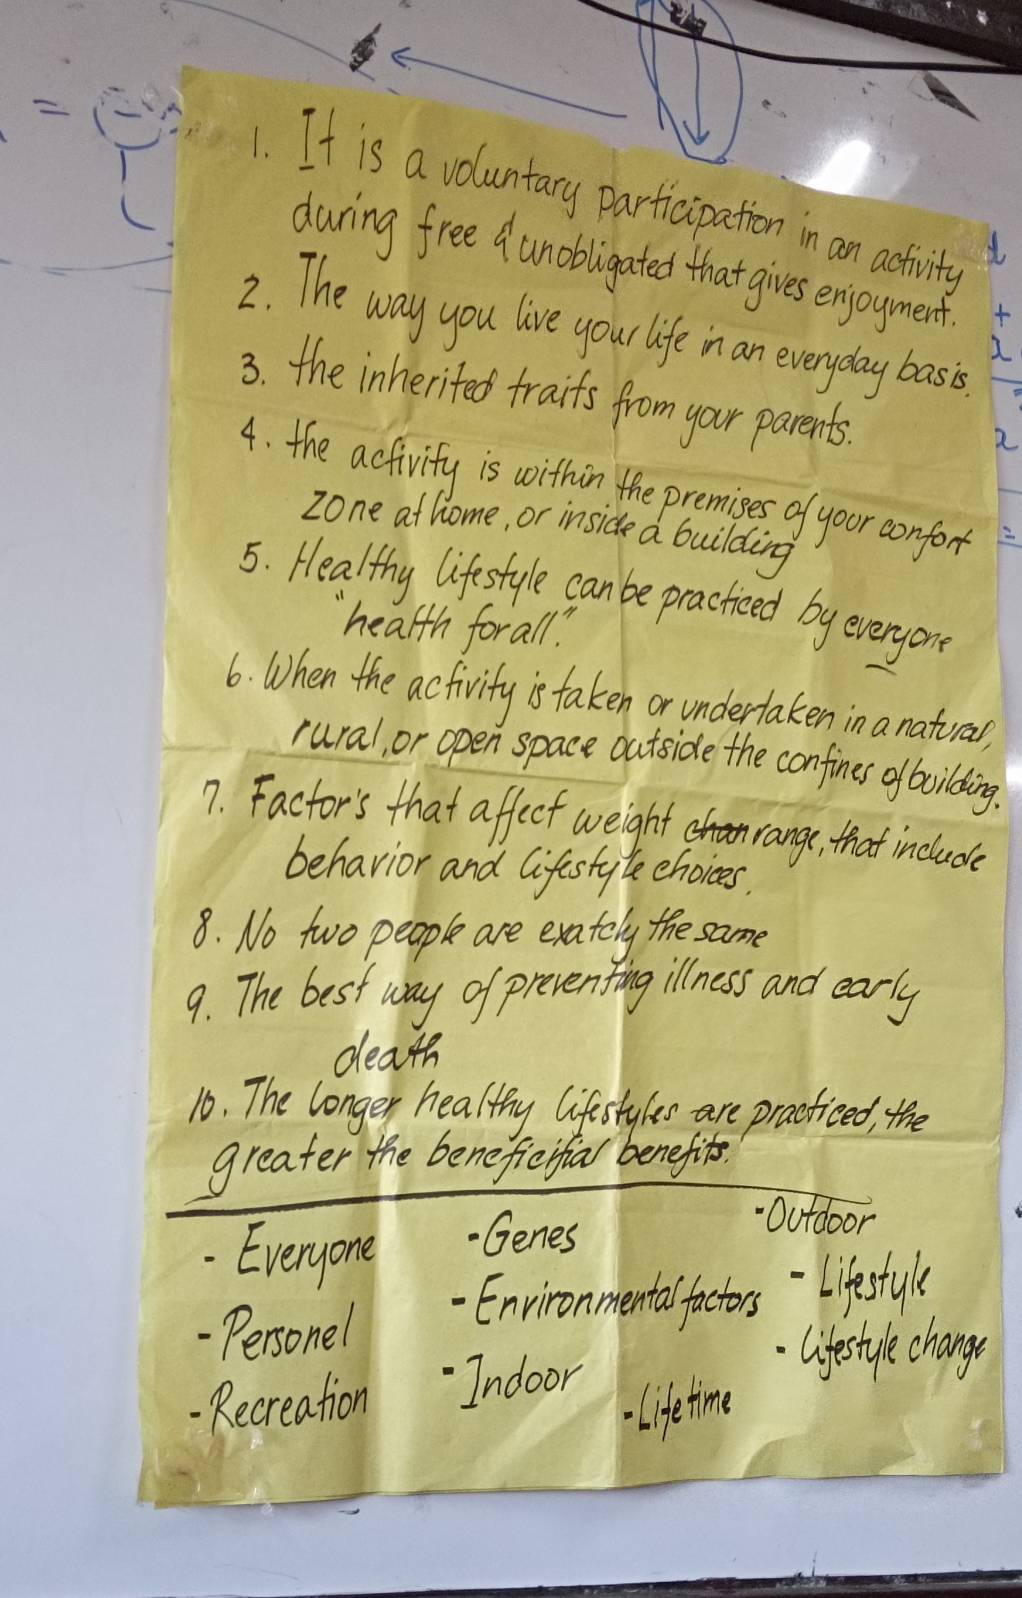 1. It is a voluntary participation in an activity
during free & unobligated that gives enjoyment.
2. The way you live your life in an everyday basis.
3. the inherited traits from your parents.
4. the activity is within the premises of your confort
zone at home, or inside a building
5. Healthy lifestyle can be practiced by everyone
"health for all."
6. When the activity is taken or undertaken in a natural,
rural, or open space outside the confines of building.
7. Factor's that affect weight chan range, that include
behavior and lifestyle choices.
8. No two people are exatcly the same
9. The best way of preventing illness and early
death
10. The longer healthy lifestyles are practiced, the
greater the beneficifial benefits.
- Everyone
- Genes
- Outdoor
- Personel
- Environmental factors
- Lifestyle
- Recreation
- Indoor
- Lifestyle change
- Lifetime